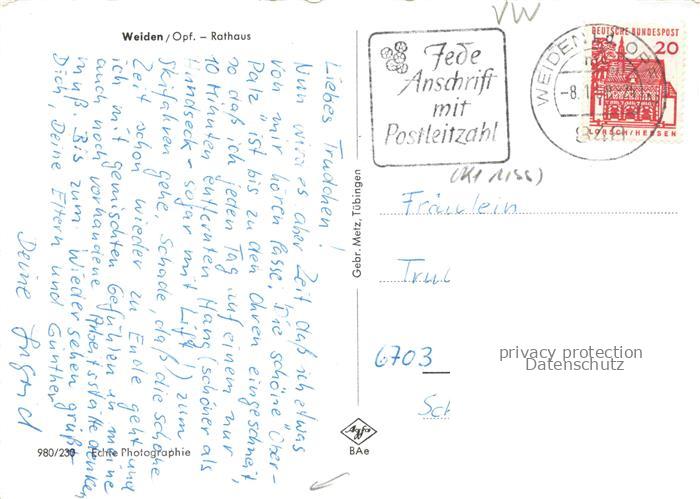 VW
Weiden/Opf. – Rathaus
Liebes Trudchen!
Nun wird es aber Zeit daß ich etwas
von mir hören lasse. Die schöne "Ober-
Palz" ist bis zu den Ohren eingeschneit,
so daß ich jeden Tag auf einem nur
10 Minuten entfernten Hang (schöner als
Hundseck - sogar mit Lift!) zum
Skifahren gehe. Schade, daß die schöne
Zeit schon wieder zu Ende geht und
ich mit gemischten Gefühlen an meine
auch noch vorhandene Arbeitsstätte denken
muß. Bis zum Wiedersehen grüßt
Dich, Deine Eltern und Günther
Deine Ingrid
980/230 Echte Photographie
Gebr. Metz, Tübingen
Jede
Anschrift
mit
Postleitzahl
WEIDEN
-8.1
DEUTSCHE BUNDESPOST
20
LORSCH/HESSEN
Fräulein
Tru
6703
Sch
privacy protection
Datenschutz
Agfa
BAe